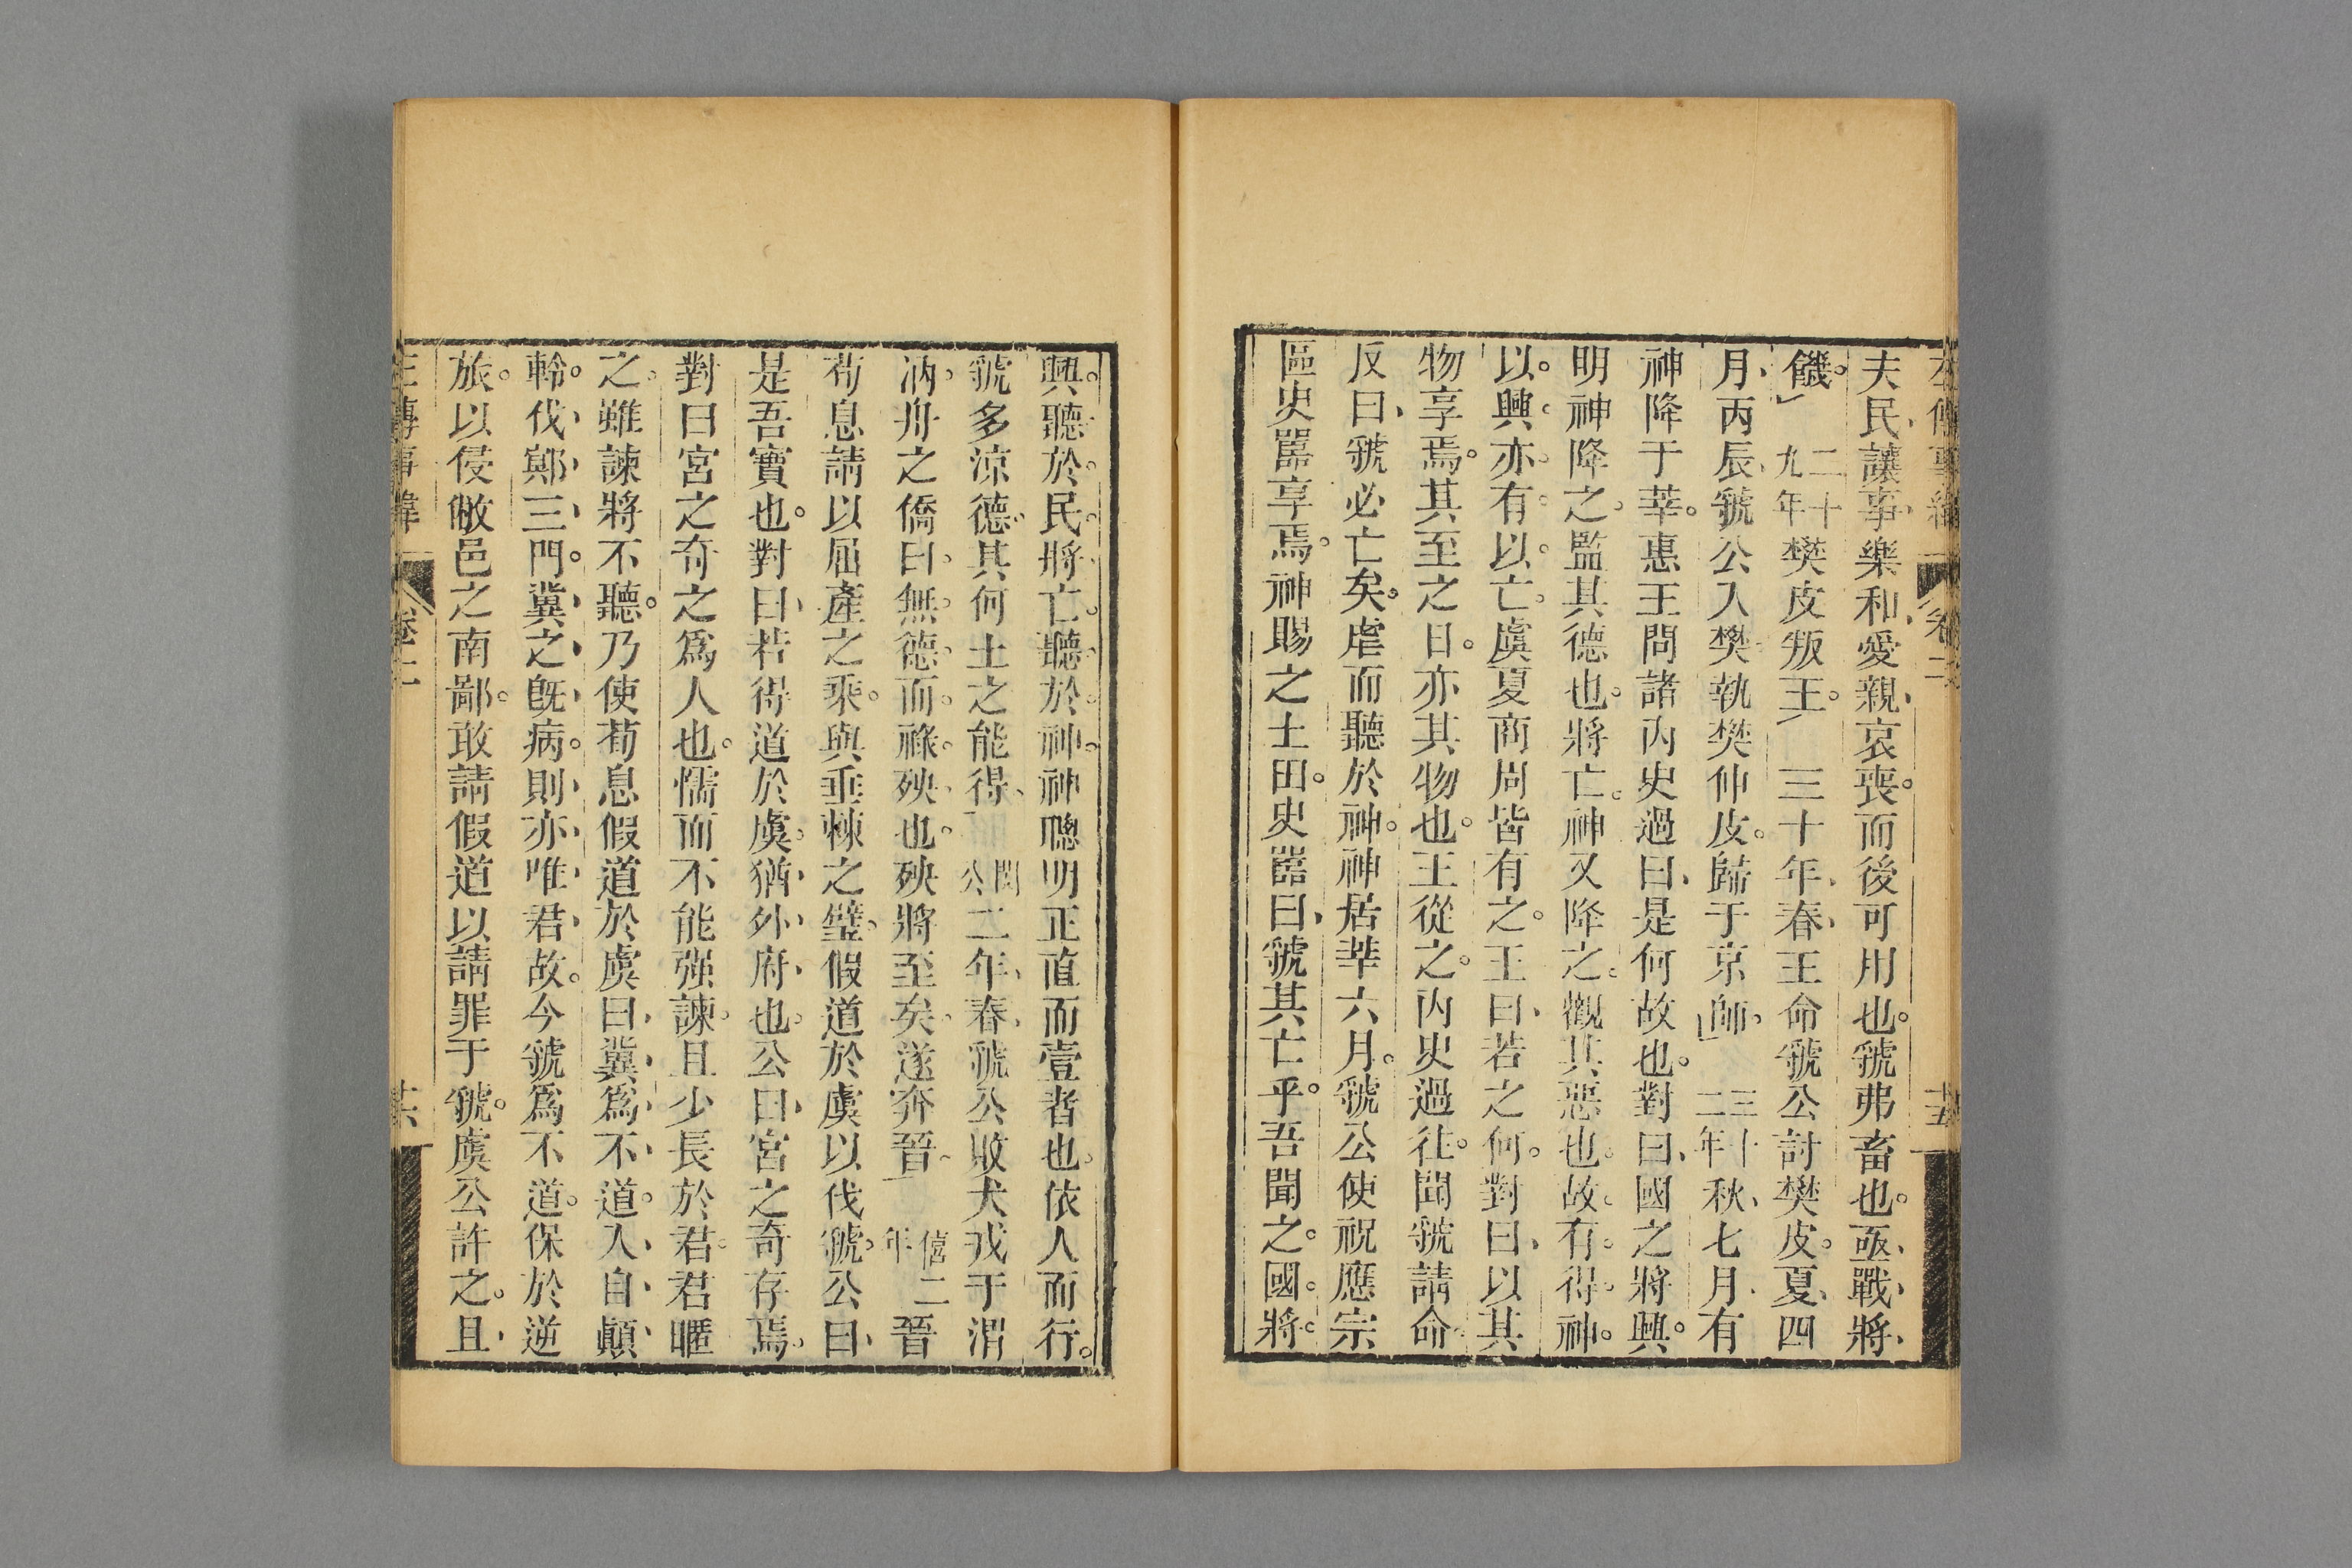 夫民讓事樂和愛親哀喪而後可用也虢弗畜也亟戰將
饑 二十九年 樊皮叛王 三十年春王命虢公討樊皮夏四
月丙辰虢公入樊執樊仲皮歸于京師 三十二年 秋七月有
神降于莘惠王問諸內史過曰是何故也對曰國之將興
明神降之監其德也將亡神又降之觀其惡也故有得神
以興亦有以亡虞夏商周皆有之王曰若之何對曰以其
物享焉其至之日亦其物也王從之內史過往聞虢請命
反曰虢必亡矣虐而聽於神神居莘六月虢公使祝應宗
區史嚚享焉神賜之土田史嚚曰虢其亡乎吾聞之國將
興聽於民將亡聽於神神聰明正直而壹者也依人而行
虢多涼德其何土之能得 閔公 二年春虢公敗犬戎于渭
汭舟之僑曰無德而祿殃也殃將至矣遂奔晉 僖二年 晉
荀息請以屈產之乘與垂棘之璧假道於虞以伐虢公曰
是吾寶也對曰若得道於虞猶外府也公曰宮之奇存焉
對曰宮之奇之爲人也懦而不能强諫且少長於君君暱
之雖諫將不聽乃使荀息假道於虞曰冀爲不道入自顚
軨伐鄍三門冀之旣病則亦唯君故今虢爲不道保於逆
旅以侵敝邑之南鄙敢請假道以請罪于虢虞公許之且
左傳事緯 卷二 十六